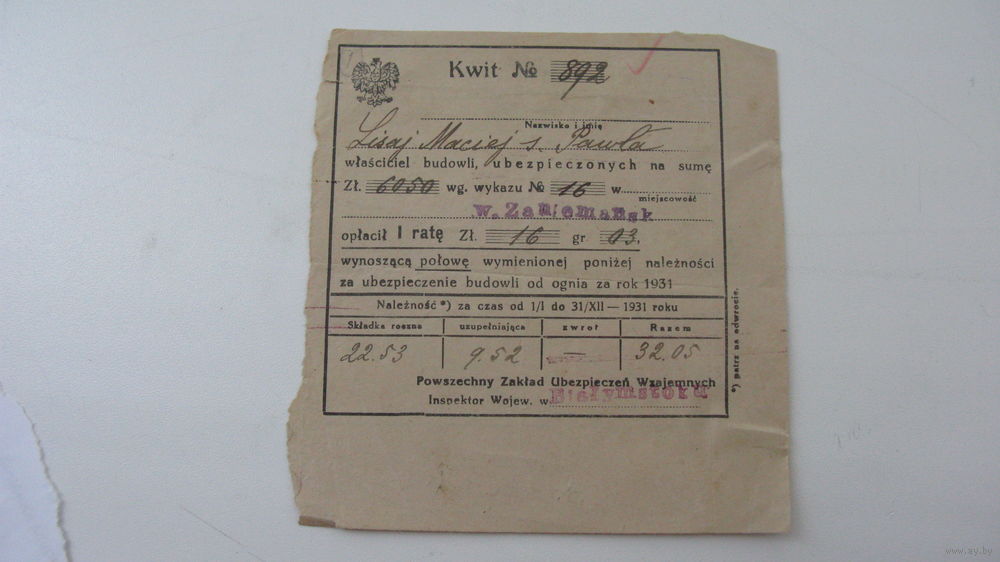 Kwit № 892
Nazwisko i imię
Lisaj Maciej s. Pawła
właściciel budowli, ubezpieczonych na sumę
Zł. 6050 wg. wykazu № 16 w
miejscowość
w. Zaniemańsk
opłacił I ratę Zł. 16 gr 03.
wynoszącą połowę wymienionej poniżej należności
za ubezpieczenie budowli od ognia za rok 1931
Należność *) za czas od 1/I do 31/XII — 1931 roku
Składka roczna uzupełniająca zwrot Razem
22.53 9.52 — 32.05
Powszechny Zakład Ubezpieczeń Wzajemnych
Inspektor Wojew. w Białymstoku
*) patrz na odwrocie.
www.ay.by